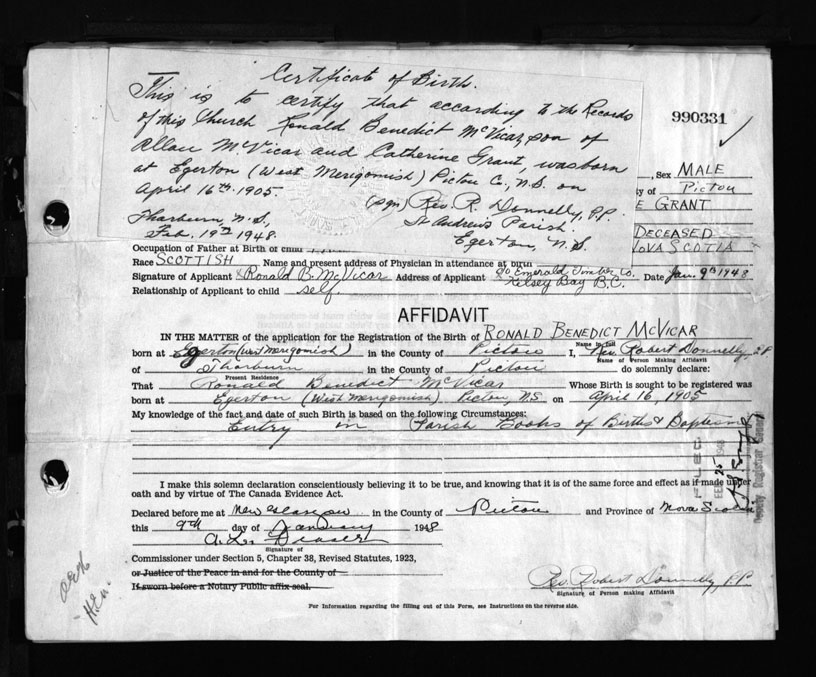 Certificate of Birth.
This is to certify that according to the Records
of this Church Ronald Benedict McVicar, son of
Allan McVicar and Catherine Grant, was born
at Egerton (West Merigomish) Pictou Co., N.S. on
April 16th 1905.
(sgn) Rev. R. Donnelly, P.P.
St Andrew's Parish.
Egerton, N.S
Thorburn, N.S,
Feb. 19th 1948.
990331
, Sex MALE
ty of Pictou
E GRANT
DECEASED
NOVA SCOTIA
Occupation of Father at Birth of child
Race SCOTTISH Name and present address of Physician in attendance at birth
Signature of Applicant Ronald B. McVicar Address of Applicant c/o Emerald Timber Co. Kelsey Bay B.C. Date Jan. 9th 1948
Relationship of Applicant to child self.
AFFIDAVIT
IN THE MATTER of the application for the Registration of the Birth of RONALD BENEDICT McVICAR
Name in full
born at Egerton (West Merigomish) in the County of Pictou I, Rev. Robert Donnelly P.P
Name of Person Making Affidavit
of Thorburn in the County of Pictou do solemnly declare:
Present Residence
That Ronald Benedict McVicar Whose Birth is sought to be registered was
born at Egerton (West Merigomish), Pictou, N.S. on April 16, 1905
My knowledge of the fact and date of such Birth is based on the following Circumstances:
Entry in Parish Books of Births & Baptisms
FILED
FEB 25 1948
Deputy Registrar General
I make this solemn declaration conscientiously believing it to be true, and knowing that it is of the same force and effect as if made under
oath and by virtue of The Canada Evidence Act.
Declared before me at New Glasgow in the County of Pictou and Province of Nova Scotia
this 9th day of January 1948
Signature of
Commissioner under Section 5, Chapter 38, Revised Statutes, 1923,
or Justice of the Peace in and for the County of
If sworn before a Notary Public affix seal.
Rev. Robert Donnelly, P.P.
Signature of Person making Affidavit
For Information regarding the filling out of this Form, see Instructions on the reverse side.